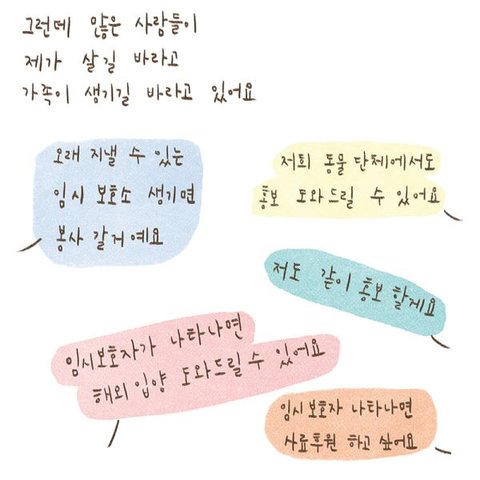 그런데 많은 사람들이
제가 살길 바라고
가족이 생기길 바라고 있어요
오래 지낼 수 있는
임시 보호소 생기면
봉사 갈거예요
저희 동물 단체에서도
홍보 도와드릴 수 있어요
저도 같이 홍보 할게요
임시보호자가 나타나면
해외 입양 도와드릴 수 있어요
임시보호자 나타나면
사료후원 하고 싶어요